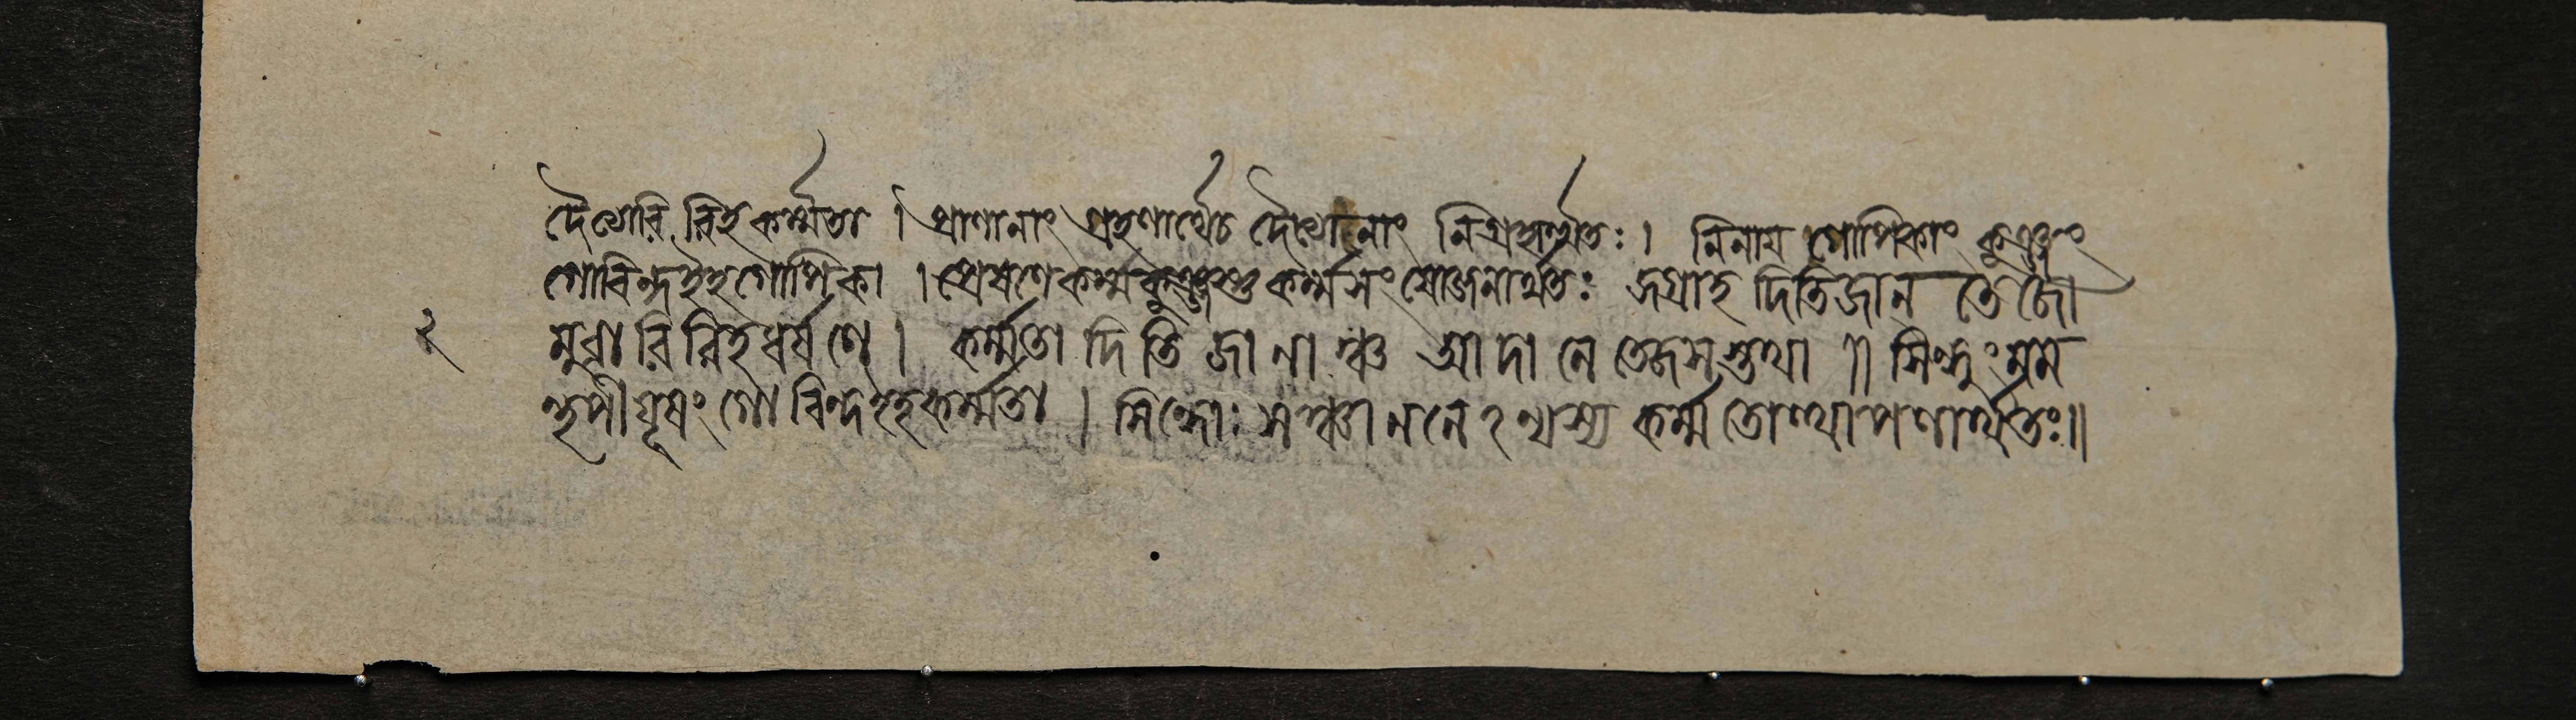 দৈত্যেৰি ৰিহ কর্ম্মতা । প্রাণানাং গ্রহণার্থেচ দৈত্যানাং নিগ্রহার্থতঃ। নিনায় গোপিকাং কুঞ্জং
গোবিন্দইহ গোপিকা । প্রেষণে কর্ম্মকুঞ্জস্তু কর্ম্মসংযোজনার্থতঃ জগ্রাহ দিতিজান তেজো
মুৰাৰিৰিহ ধর্ষণে । কর্ম্মতা দিতিজানাঞ্চ আদানে তেজসস্তথা ॥ সিন্ধুং মম
ন্থপীয়ূষং গোবিন্দইহ কর্ম্মতা । সিন্ধোঃ সঞ্চালনেঽন্যস্য কর্ম্মতোত্থাপণার্থতঃ॥
২